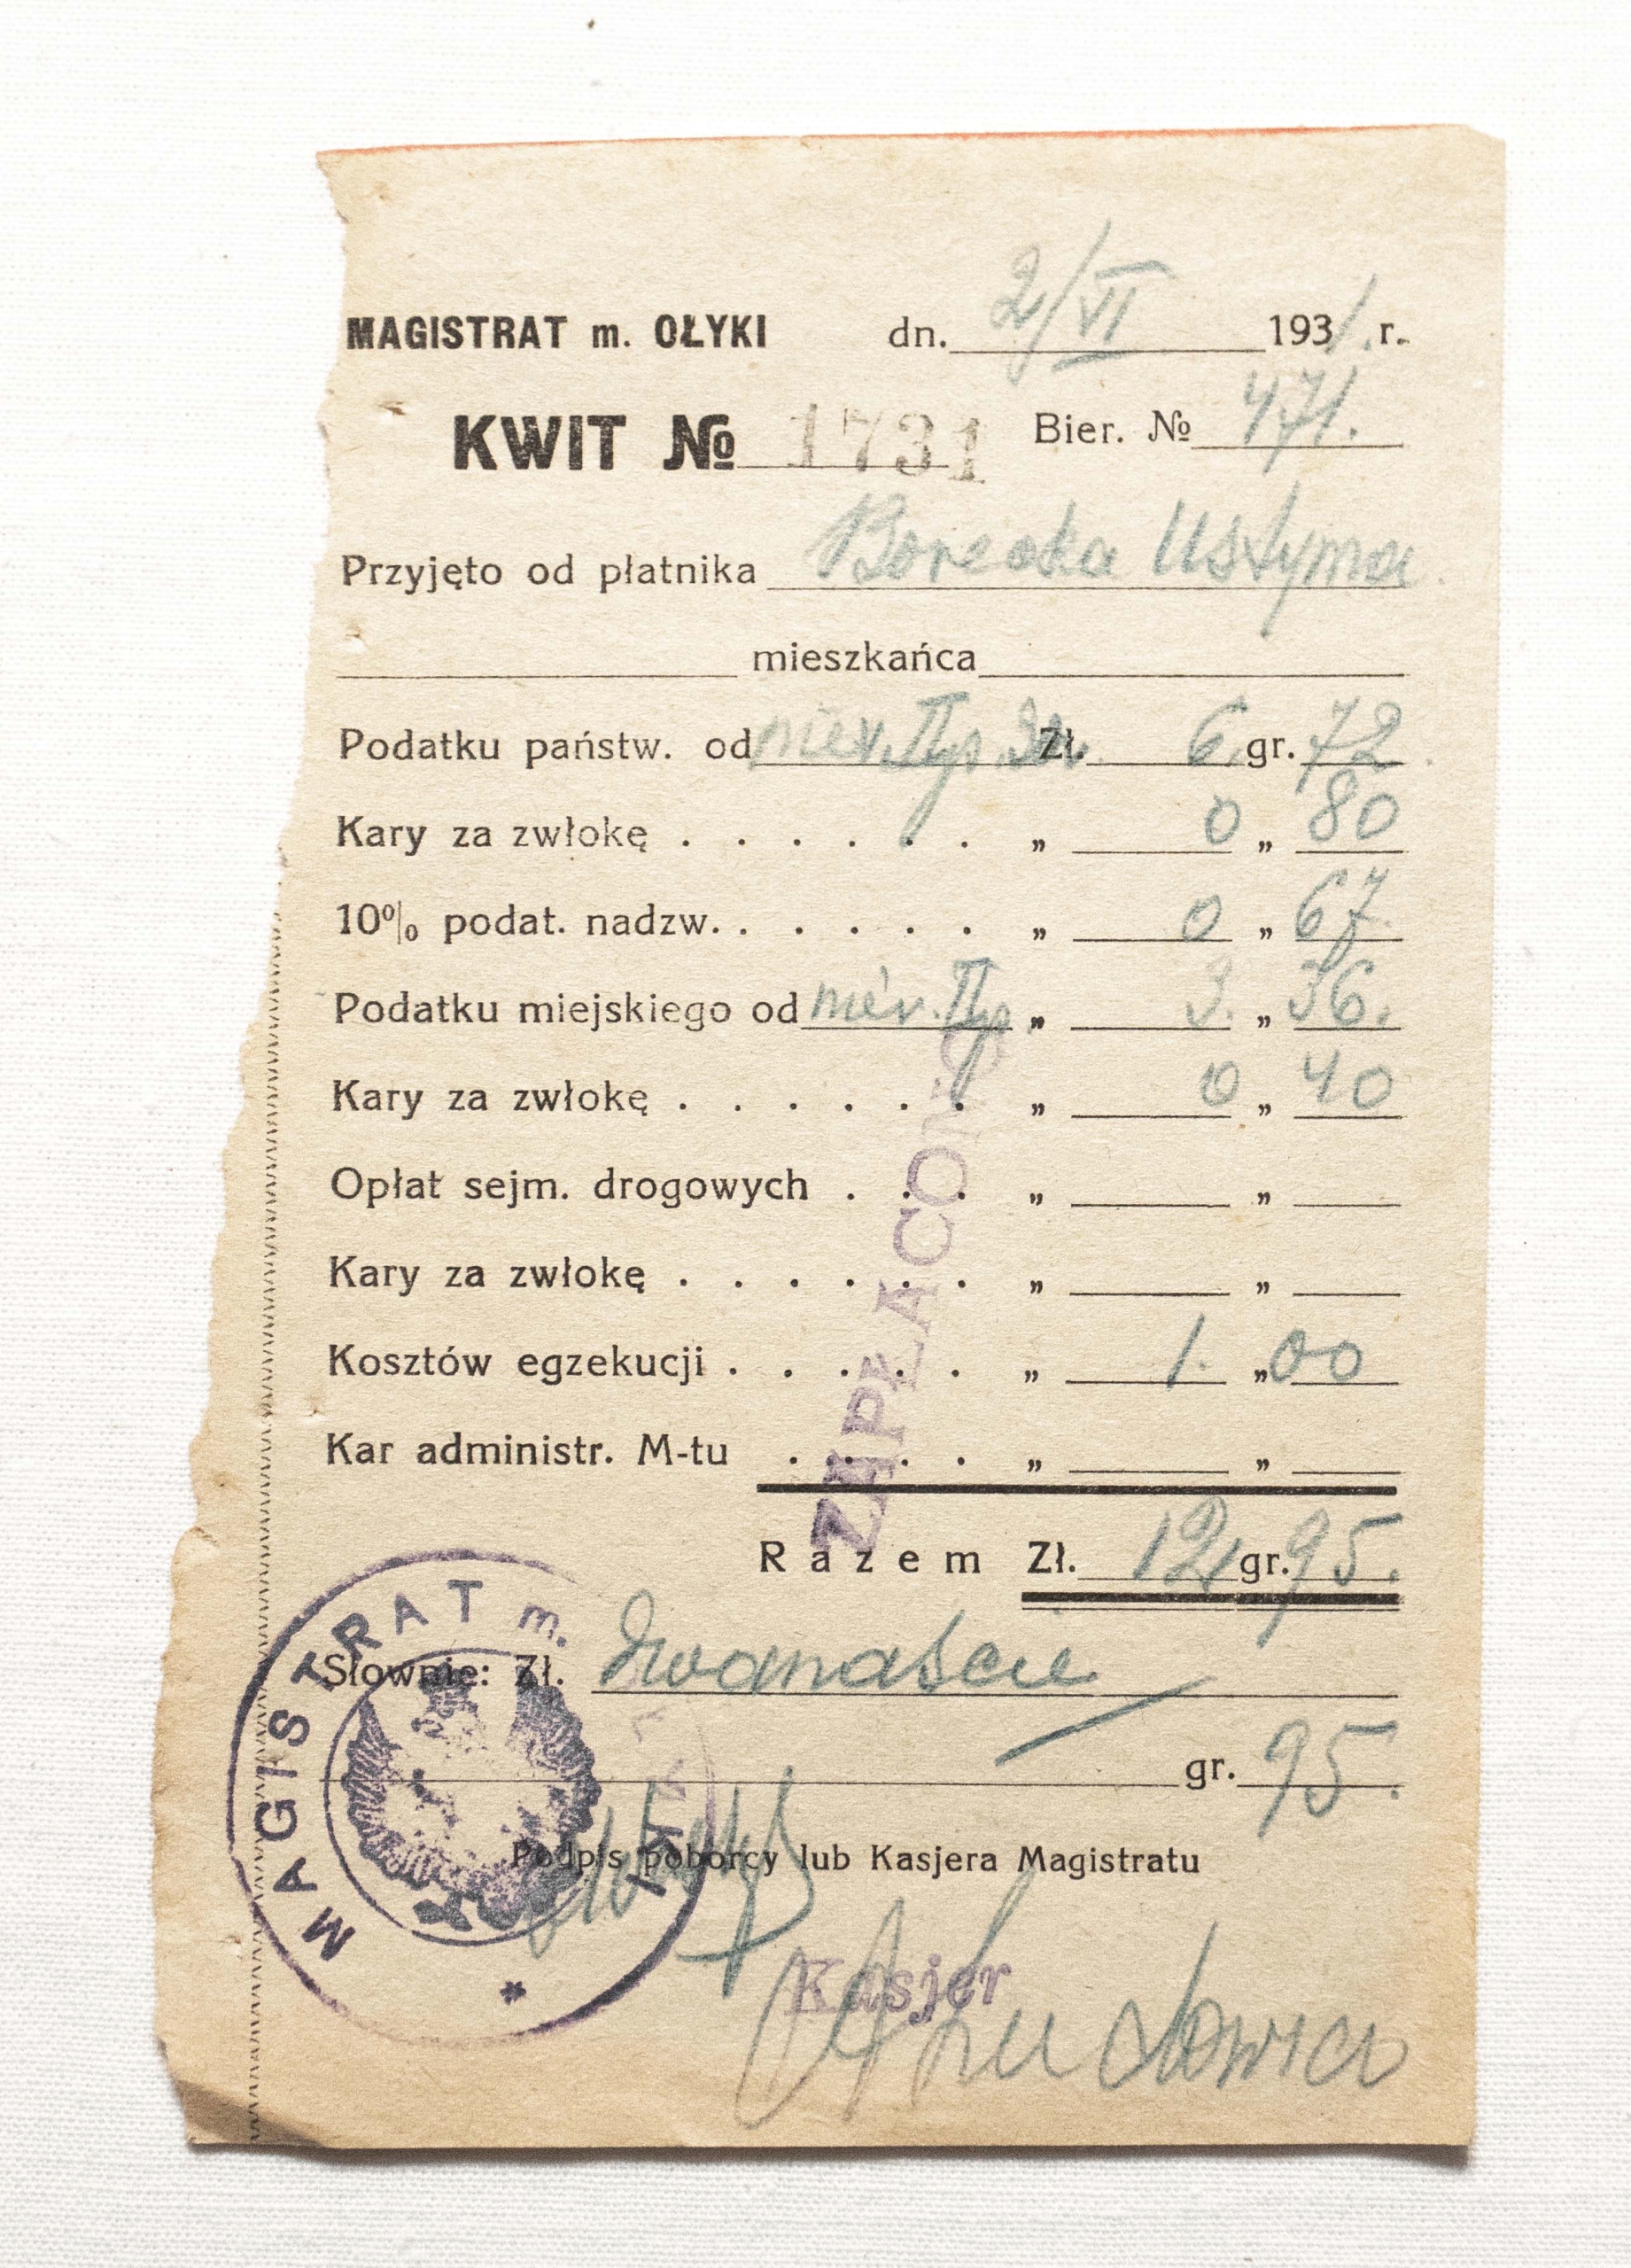 MAGISTRAT m. OŁYKI dn. 2/VI 1931. r.
KWIT № 1731 Bier. № 471.
Przyjęto od płatnika Borecka Ustyma
mieszkańca
Podatku państw. od Zł. 6. gr. 72
Kary za zwłokę . . . . . . „ 0 „ 80
10% podat. nadzw. . . . . . „ 0 „ 67
Podatku miejskiego od „ 3. „ 36.
Kary za zwłokę . . . . . . „ 0 „ 40
Opłat sejm. drogowych . . . „ „
Kary za zwłokę . . . . . . „ „
Kosztów egzekucji . . . . . „ 1. „ 00
Kar administr. M-tu . . . . „ „
ZAPŁACONO
Razem Zł. 12 gr. 95.
Słownie: Zł. dwanaście
gr. 95.
MAGISTRAT m.
Podpis poborcy lub Kasjera Magistratu
Kasjer